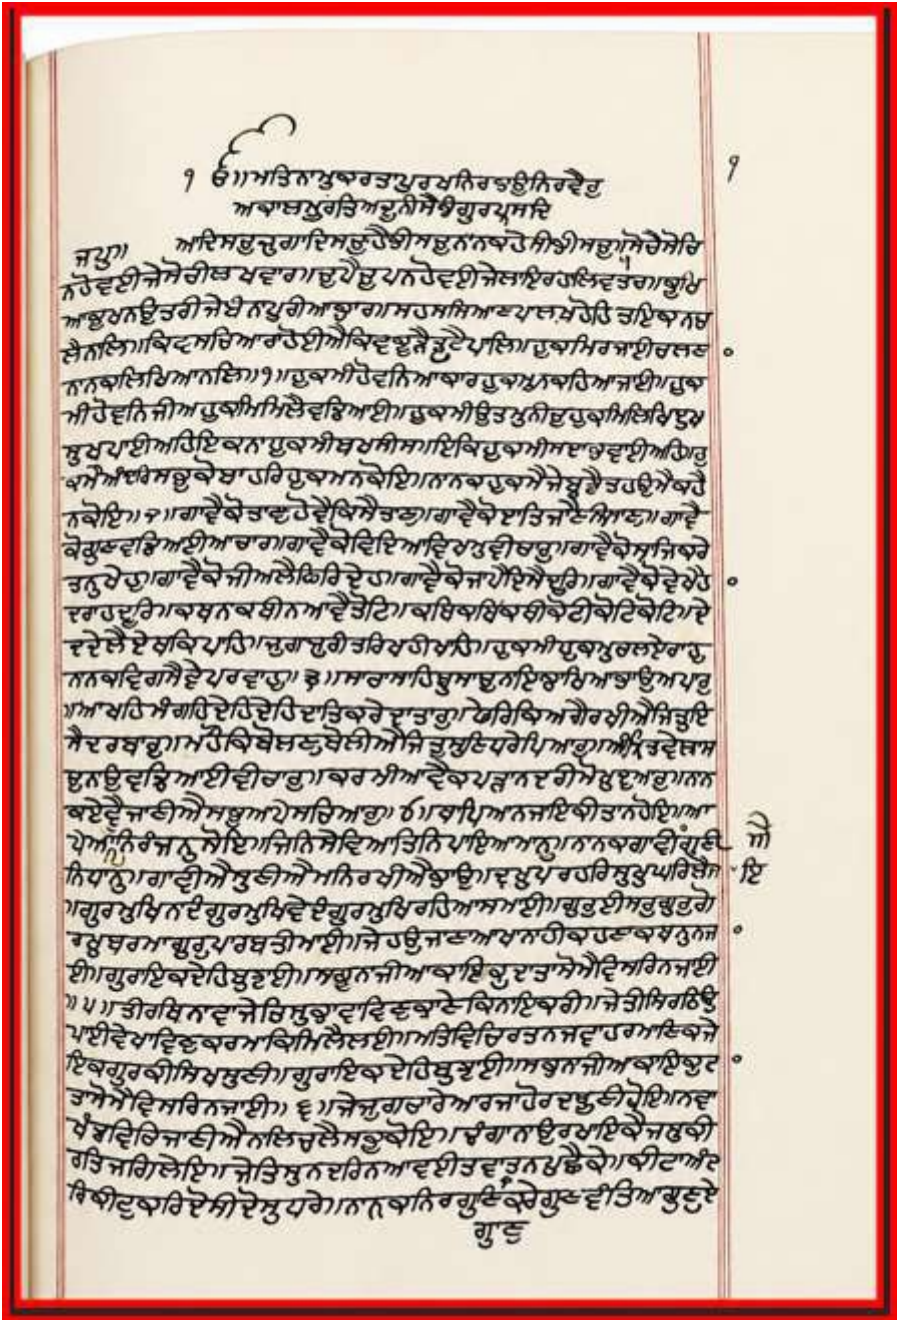 ੧ ੴ॥ਸਤਿਨਾਮੁਕਰਤਾਪੁਰਖੁਨਿਰਭਉਨਿਰਵੈਰੁ ੧
ਅਕਾਲਮੂਰਤਿਅਜੂਨੀਸੈਭੰਗੁਰਪ੍ਰਸਾਦਿ
ਜਪੁ॥ ਆਦਿਸਚੁਜੁਗਾਦਿਸਚੁਹੈਭੀਸਚੁਨਾਨਕਹੋਸੀਭੀਸਚੁ॥ਸੋਚੈਸੋਚਿ
ਨਹੋਵਈਜੇਸੋਚੀਲਖਵਾਰ॥ਚੁਪੈਚੁਪਨਹੋਵਈਜੇਲਾਇਰਹਾਲਿਵਤਾਰ॥ਭੁਖਿ
ਆਭੁਖਨਉਤਰੀਜੇਬੰਨਾਪੁਰੀਆਭਾਰ॥ਸਹਸਸਿਆਣਪਾਲਖਹੋਹਿਤਇਕਨਚ
ਲੈਨਾਲਿ॥ਕਿਵਸਚਿਆਰਾਹੋਈਐਕਿਵਕੂੜੈਤੁਟੈਪਾਲਿ॥ਹੁਕਮਿਰਜਾਈਚਲਣਾ
ਨਾਨਕਲਿਖਿਆਨਾਲਿ॥੧॥ਹੁਕਮੀਹੋਵਨਿਆਕਾਰਹੁਕਮੁਨਕਹਿਆਜਾਈ॥ਹੁਕ
ਮੀਹੋਵਨਿਜੀਅਹੁਕਮਿਮਿਲੈਵਡਿਆਈ॥ਹੁਕਮੀਉਤਮੁਨੀਚੁਹੁਕਮਿਲਿਖਿਦੁਖ
ਸੁਖਪਾਈਅਹਿ॥ਇਕਨਾਹੁਕਮੀਬਖਸੀਸ॥ਇਕਿਹੁਕਮੀਸਦਾਭਵਾਈਅਹਿ॥ਹੁ
ਕਮੈਅੰਦਰਿਸਭੁਕੋਬਾਹਰਿਹੁਕਮਨਕੋਇ॥ਨਾਨਕਹੁਕਮੈਜੇਬੁਝੈਤਹਉਮੈਕਹੈ
ਨਕੋਇ॥੨॥ਗਾਵੈਕੋਤਾਣੁਹੋਵੈਕਿਸੈਤਾਣੁ॥ਗਾਵੈਕੋਦਾਤਿਜਾਣੈਨੀਸਾਣੁ॥ਗਾਵੈ
ਕੋਗੁਣਵਡਿਆਈਆਚਾਰ॥ਗਾਵੈਕੋਵਿਦਿਆਵਿਖਮੁਵੀਚਾਰੁ॥ਗਾਵੈਕੋਸਾਜਿਕਰੇ
ਤਨੁਖੇਹੁ॥ਗਾਵੈਕੋਜੀਅਲੈਫਿਰਿਦੇਹ॥ਗਾਵੈਕੋਜਾਪੈਦਿਸੈਦੂਰਿ॥ਗਾਵੈਕੋਵੇਖੈਹਾ
ਦਰਾਹਦੂਰਿ॥ਕਥਨਾਕਥੀਨਆਵੈਤੋਟਿ॥ਕਥਿਕਥਿਕਥੀਕੋਟੀਕੋਟਿਕੋਟਿ॥ਦੇ
ਦਾਦੇਲੈਦੇਥਕਿਪਾਹਿ॥ਜੁਗਾਜੁਗੰਤਰਿਖਾਹੀਖਾਹਿ॥ਹੁਕਮੀਹੁਕਮੁਚਲਾਏਰਾਹੁ
ਨਾਨਕਵਿਗਸੈਵੇਪਰਵਾਹੁ॥੩॥ਸਾਚਾਸਾਹਿਬੁਸਾਚੁਨਾਇਭਾਖਿਆਭਾਉਅਪਾਰੁ
॥ਆਖਹਿਮੰਗਹਿਦੇਹਿਦੇਹਿਦਾਤਿਕਰੇਦਾਤਾਰੁ॥ਫੇਰਿਕਿਅਗੈਰਖੀਐਜਿਤੁਦਿ
ਸੈਦਰਬਾਰੁ॥ਮੁਹੌਕਿਬੋਲਣੁਬੋਲੀਐਜਿਤੁਸੁਣਿਧਰੇਪਿਆਰੁ॥ਅੰਮ੍ਰਿਤਵੇਲਾਸ
ਚੁਨਾਉਵਡਿਆਈਵੀਚਾਰੁ॥ਕਰਮੀਆਵੈਕਪੜਾਨਦਰੀਮੋਖੁਦੁਆਰੁ॥ਨਾਨ
ਕਏਵੈਜਾਣੀਐਸਭੁਆਪੇਸਚਿਆਰੁ॥੪॥ਥਾਪਿਆਨਜਾਇਕੀਤਾਨਹੋਇ॥ਆ
ਪੇਆਪਿਨਿਰੰਜਨੁਸੋਇ॥ਜਿਨਿਸੇਵਿਆਤਿਨਿਪਾਇਆਮਾਨੁ॥ਨਾਨਕਗਾਵੀਗੁਣੀ ਐ
ਨਿਧਾਨੁ॥ਗਾਵੀਐਸੁਣੀਐਮਨਿਰਖੀਐਭਾਉ॥ਦੁਖੁਪਰਹਰਿਸੁਖੁਘਰਿਲੈਜਾ ਇ
॥ਗੁਰਮੁਖਿਨਾਦੰਗੁਰਮੁਖਿਵੇਦੰਗੁਰਮੁਖਿਰਹਿਆਸਮਾਈ॥ਗੁਰੁਈਸਰੁਗੁਰੁਗੋ
ਰਖੁਬਰਮਾਗੁਰੁਪਾਰਬਤੀਮਾਈ॥ਜੇਹਉਜਾਣਾਆਖਾਨਾਹੀਕਹਣਾਕਥਨੁਨਜਾ
ਈ॥ਗੁਰਾਇਕਦੇਹਿਬੁਝਾਈ॥ਸਭਨਾਜੀਆਕਾਇਕੁਦਾਤਾਸੋਮੈਵਿਸਰਿਨਜਾਈ
॥੫॥ਤੀਰਥਿਨਾਵਾਜੇਤਿਸੁਭਾਵਾਵਿਣੁਭਾਣੇਕਿਨਾਇਕਰੀ॥ਜੇਤੀਸਿਰਠਿਉ
ਪਾਈਵੇਖਾਵਿਣੁਕਰਮਾਕਿਮਿਲੈਲਈ॥ਮਤਿਵਿਚਿਰਤਨਜਵਾਹਰਮਾਣਿਕਜੇ
ਇਕਗੁਰਕੀਸਿਖਸੁਣੀ॥ਗੁਰਾਇਕਦੇਹਿਬੁਝਾਈ॥ਸਭਨਾਜੀਆਕਾਇਕੁਦਾ
ਤਾਸੋਮੈਵਿਸਰਿਨਜਾਈ॥੬॥ਜੇਜੁਗਚਾਰੇਆਰਜਾਹੋਰਦਸੂਣੀਹੋਇ॥ਨਵਾ
ਖੰਡਾਵਿਚਿਜਾਣੀਐਨਾਲਿਚਲੈਸਭੁਕੋਇ॥ਚੰਗਾਨਾਉਰਖਾਇਕੈਜਸੁਕੀ
ਰਤਿਜਗਿਲੇਇ॥ਜੇਤਿਸੁਨਦਰਿਨਆਵਈਤਵਾਤਨਪੁਛੈਕੇ॥ਕੀਟਾਅੰਦ
ਰਿਕੀਟੁਕਰਿਦੋਸੀਦੋਸੁਧਰੇ॥ਨਾਨਕਨਿਰਗੁਣਿਕਰੇਗੁਣਵੰਤਿਆਗੁਣੁਦੇ
ਗੁਣੁ